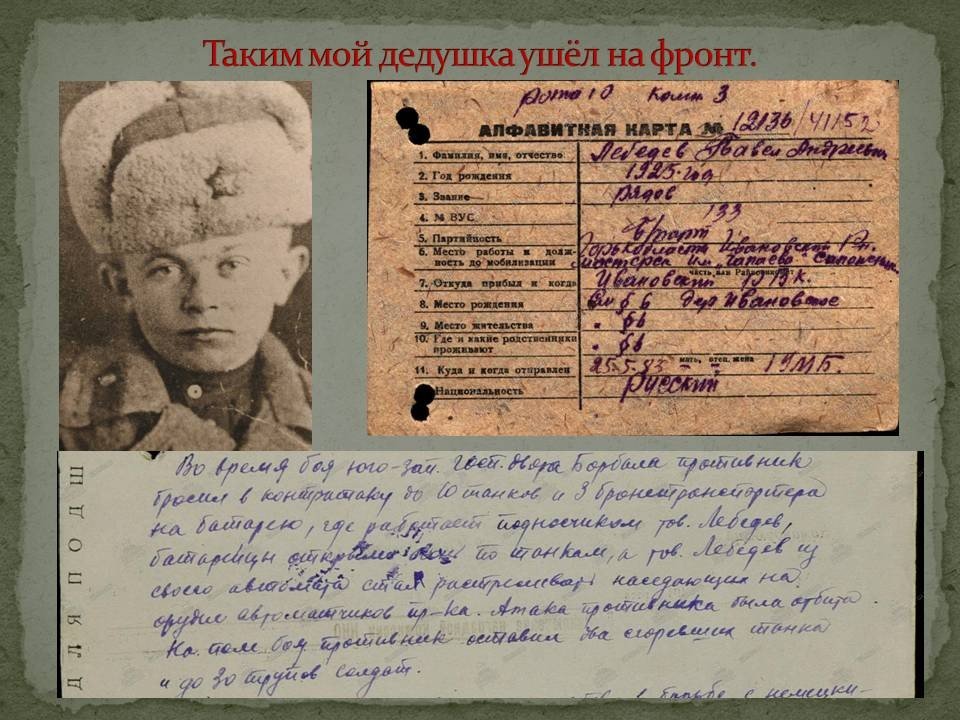 Таким мой дедушка ушёл на фронт.
рота 10 Комн 3
АЛФАВИТНАЯ КАРТА № 12136/41152
1. Фамилия, имя, отчество Лебедев Павел Андреевич
2. Год рождения 1925 год
3. Звание рядов
4. № ВУС 133
5. Партийность б/парт
6. Место работы и долж-
ность до мобилизации
Ивановский
им. Чапаева
часть или Райвоенкомат
7. Откуда прибыл и когда Ивановский РВК.
8. Место рождения См § 6 дер Ивановское
9. Место жительства " § 6
10. Где и какие родственники
проживают " § 6
мать, отец, жена
11. Куда и когда отправлен 25.5.43
Национальность Русский
ДЛЯ ПОДШ
Во время боя юго-зап. Госп. двора Борбала противник
бросил в контратаку до 10 танков и 3 бронетранспортера
на батарею, где работает подносчиком тов. Лебедев,
батарейцы открыли по танкам, а тов. Лебедев из
своего автомата стал расстреливать наседающих на
орудие автоматчиков пр-ка. Атака противника была отбита.
На поле боя противник оставил два сгоревших танка
и до 30 трупов солдат.
в борьбе с немецки-